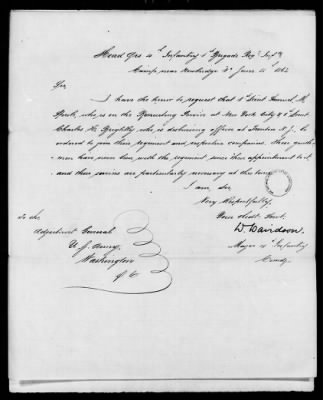 Head Qrs 4th Infantry 1st Brigade Reg. Inf.
Camp near New Bridge Va June 11th 1862
Sir
I have the honor to request that 1st Lieut Samuel
who is on the Recruiting Service at New York City & 1st Lieut
Charles H. who is disbursing officer at Trenton N.J., be
ordered to join their regiment and respective companies. These gentle-
men have never been with the regiment since their appointment to it,
and their services are particularly necessary at this time.
I am, Sir
Very Respectfully
Your Obdt. Servt.
D. Davidson.
Major 4th Infantry
Comdg.
To the
Adjutant General
U.S. Army,
Washington
D.C.